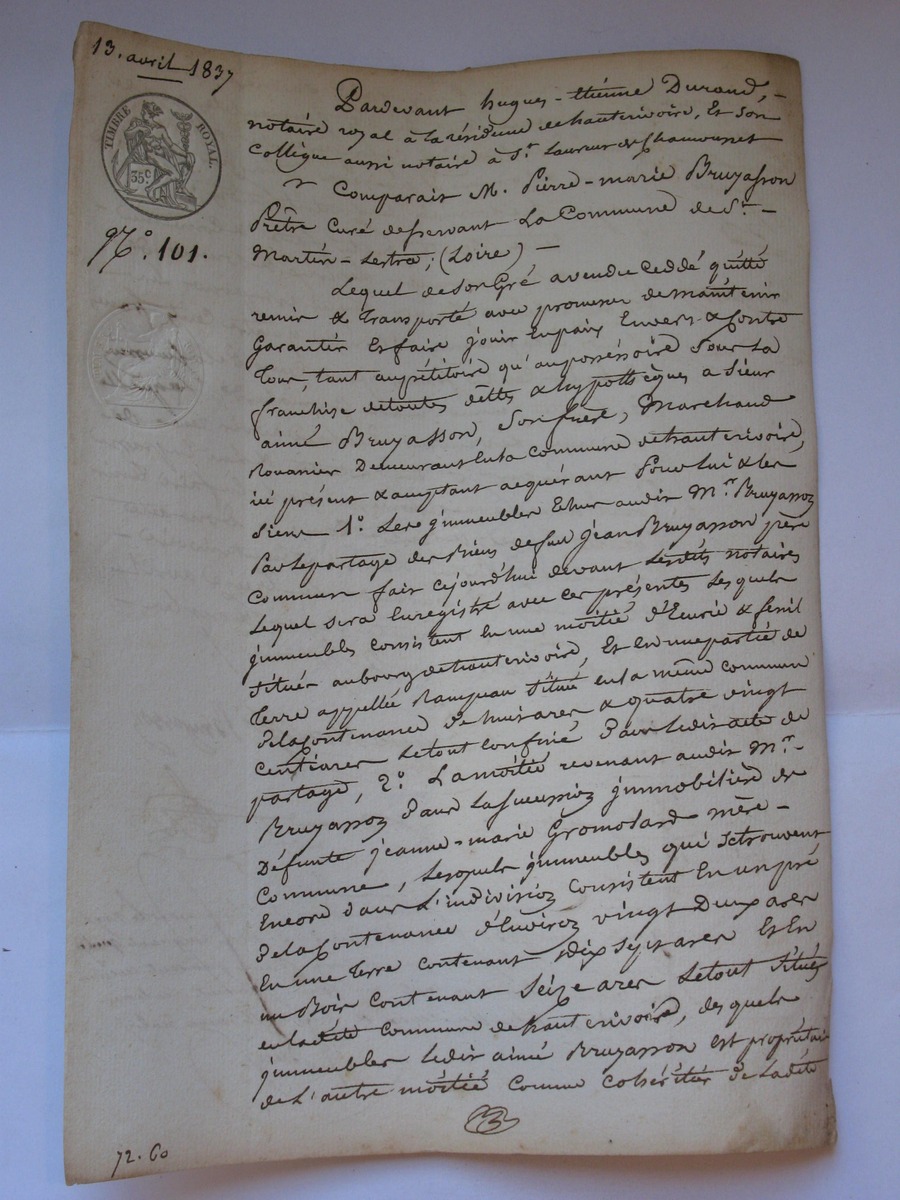 13. avril 1837
TIMBRE ROYAL.
35c
No. 101.
Pardevant hugues-étienne Durand,
notaire royal à la résidence de hauterivoire, Et son
Collègue aussi notaire à St. Laurent de Chamousset
Comparait M. Pierre-marie Bruyasson
Prêtre Curé desservant La Commune de St.-
Martin-Lestra; (Loire) -
Lequel de son Gré a vendu ceddé quitté
remis & transporté avec promesse de maintenir
Garantir Et faire jouir En paix Envers & Contre
Tous, tant au pétitoire qu'au posséssoire Sous La
franchise de toutes dêttes & hypothèques a Sieur
aimé Bruyasson, Son frère, Marchand
Rouanier Demeurant En la commune de hauterivoire,
ici présent & acceptant acquérant Pour lui & les
Siens 1o. Les jmmeubles Echus audit Mr. Bruyasson
Par Le partage des Biens de feu jean Bruyasson père
Commun fait cejourd'hui devant Lesdits notaires
Lequel sera Enregistré avec ces présentes Lesquels
jmmeubles consistent En une moitié d'Ecurie & fenil
situés au bourg de hauterivoire, Et En une partie de
Terre appellée Rampeau Située en la même commune
De la Contenance de huit ares & quatre vingt
Centiares Le tout confiné Dans Ledit acte de
partage, 2o. La moitié revenant audit Mr.-
Bruyasson Dans La Succession jmmobilière de
Défunte jeanne-marie Gromolard mère-
Commune, Lesquels jmmeubles qui Se trouvent
Encore Dans L'indivision Consistent En un pré
De la Contenance d'Environ vingt Deux ares
En une Terre contenant Dix Sept ares Et En
un Bois Contenant Seize ares Le tout Situés
en ladite Commune de hauterivoire, desquels
jmmeubles Ledit aimé Bruyasson est propriétaire
de L'autre moitié Comme cohéritier de Ladite
72. 60